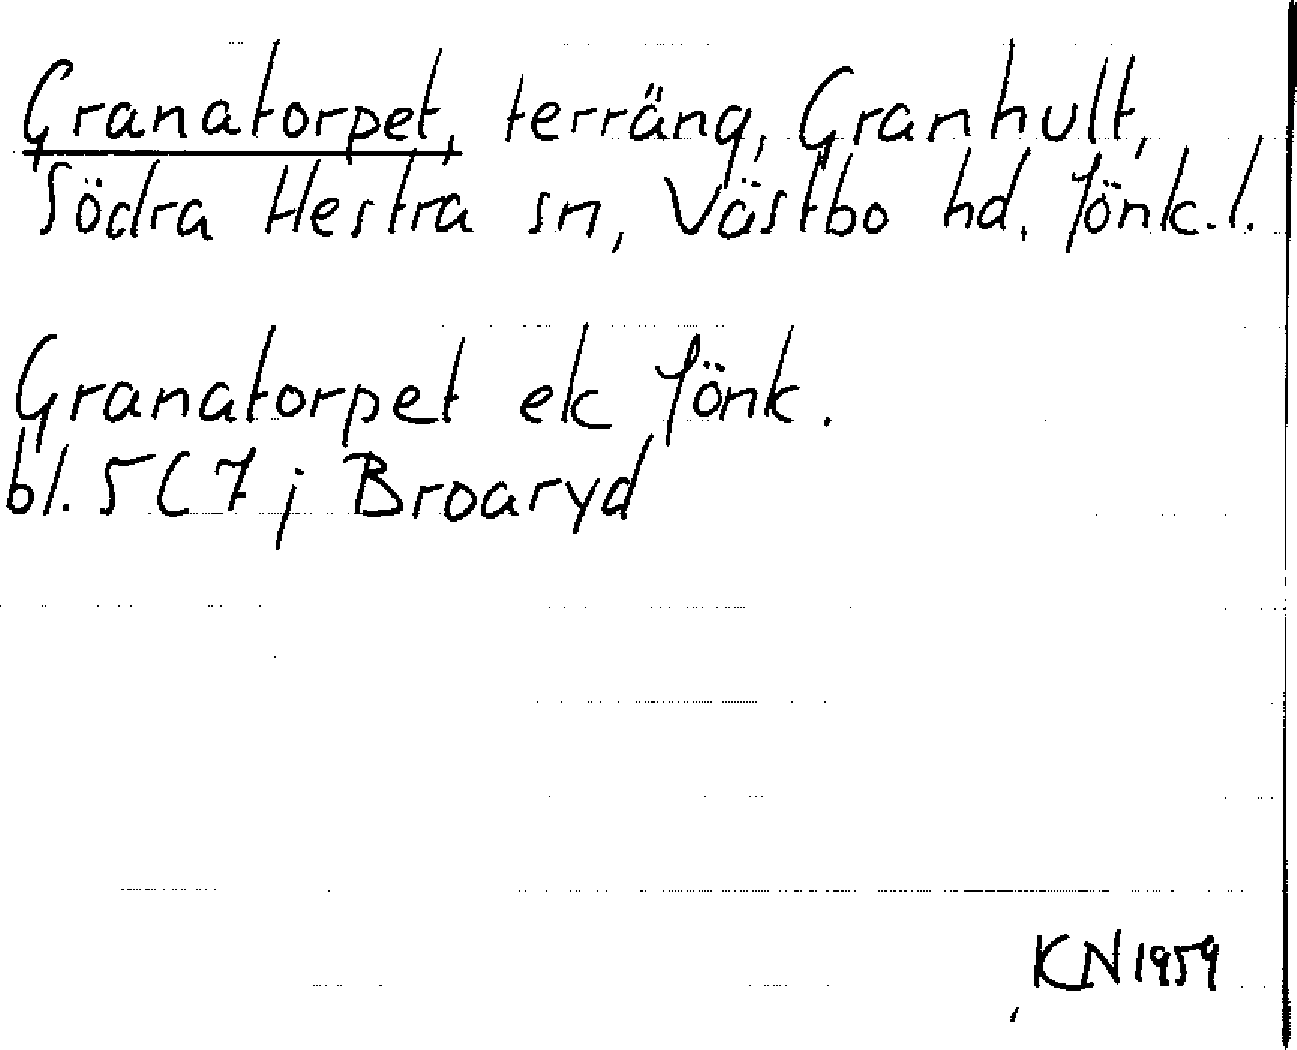 Granatorpet, terräng, Granhult,
Södra Hestra sn, Västbo hd. Jönk.l.
Granatorpet ek Jönk.
bl. 5C7j Broaryd
KN 1959